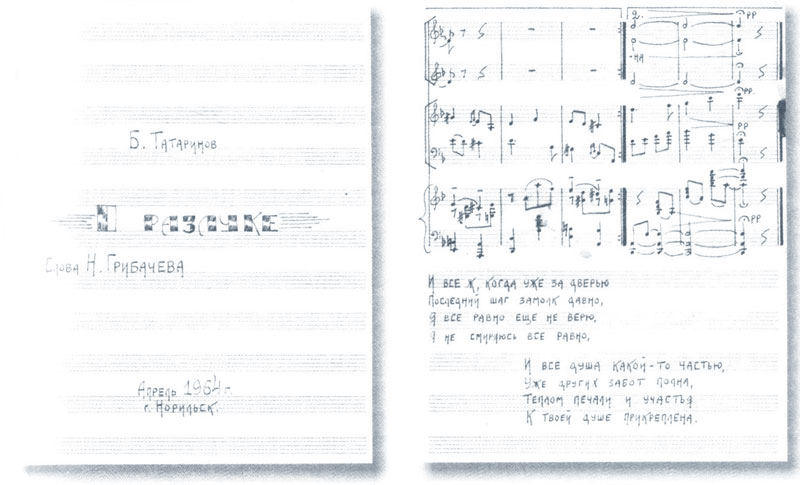 Б. Татаринов
РАЗЛУКЕ
Слова Н. Грибачева
Апрель 1964 г.
г. Норильск.
2.
pp
-на
pp
pp
pp
И все ж, когда уже за дверью
Последний шаг замолк давно,
Я все равно еще не верю,
И не смиряюсь все равно,
И все душа какой-то частью,
Уже других забот полна,
Теплом печали и участья
К твоей душе прикреплена.